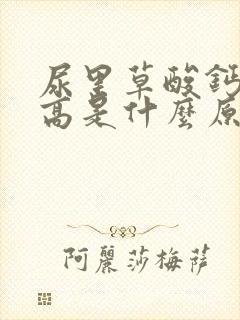 尿里草酸鈣
高是什麼原
阿麗莎梅薩